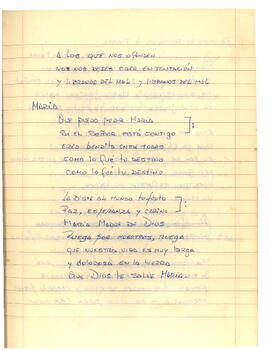 A LOS QUE NOS OFENDEN
NOS NOS DEJES CAER EN TENTACIÓN
Y LIBRANOS DEL MAL Y LIBRANOS DEL MAL
MARÍA
QUE PUEDO PEDIR MARÍA
EL SEÑOR ESTÁ CONTIGO
ERES BENDITA ENTRE TODAS
COMO LO FUÉ TU DESTINO
COMO LO FUE TU DESTINO
LE DISTE AL MUNDO
PAZ, ESPERANZA Y CARIÑO
MARÍA MADRE DE DIOS
RUEGA POR NOSOTROS, RUEGA
QUE NUESTRA VIDA ES MUY LARGA
Y DOLOROSA EN LA TIERRA
QUE DIOS TE SALVE MARÍA